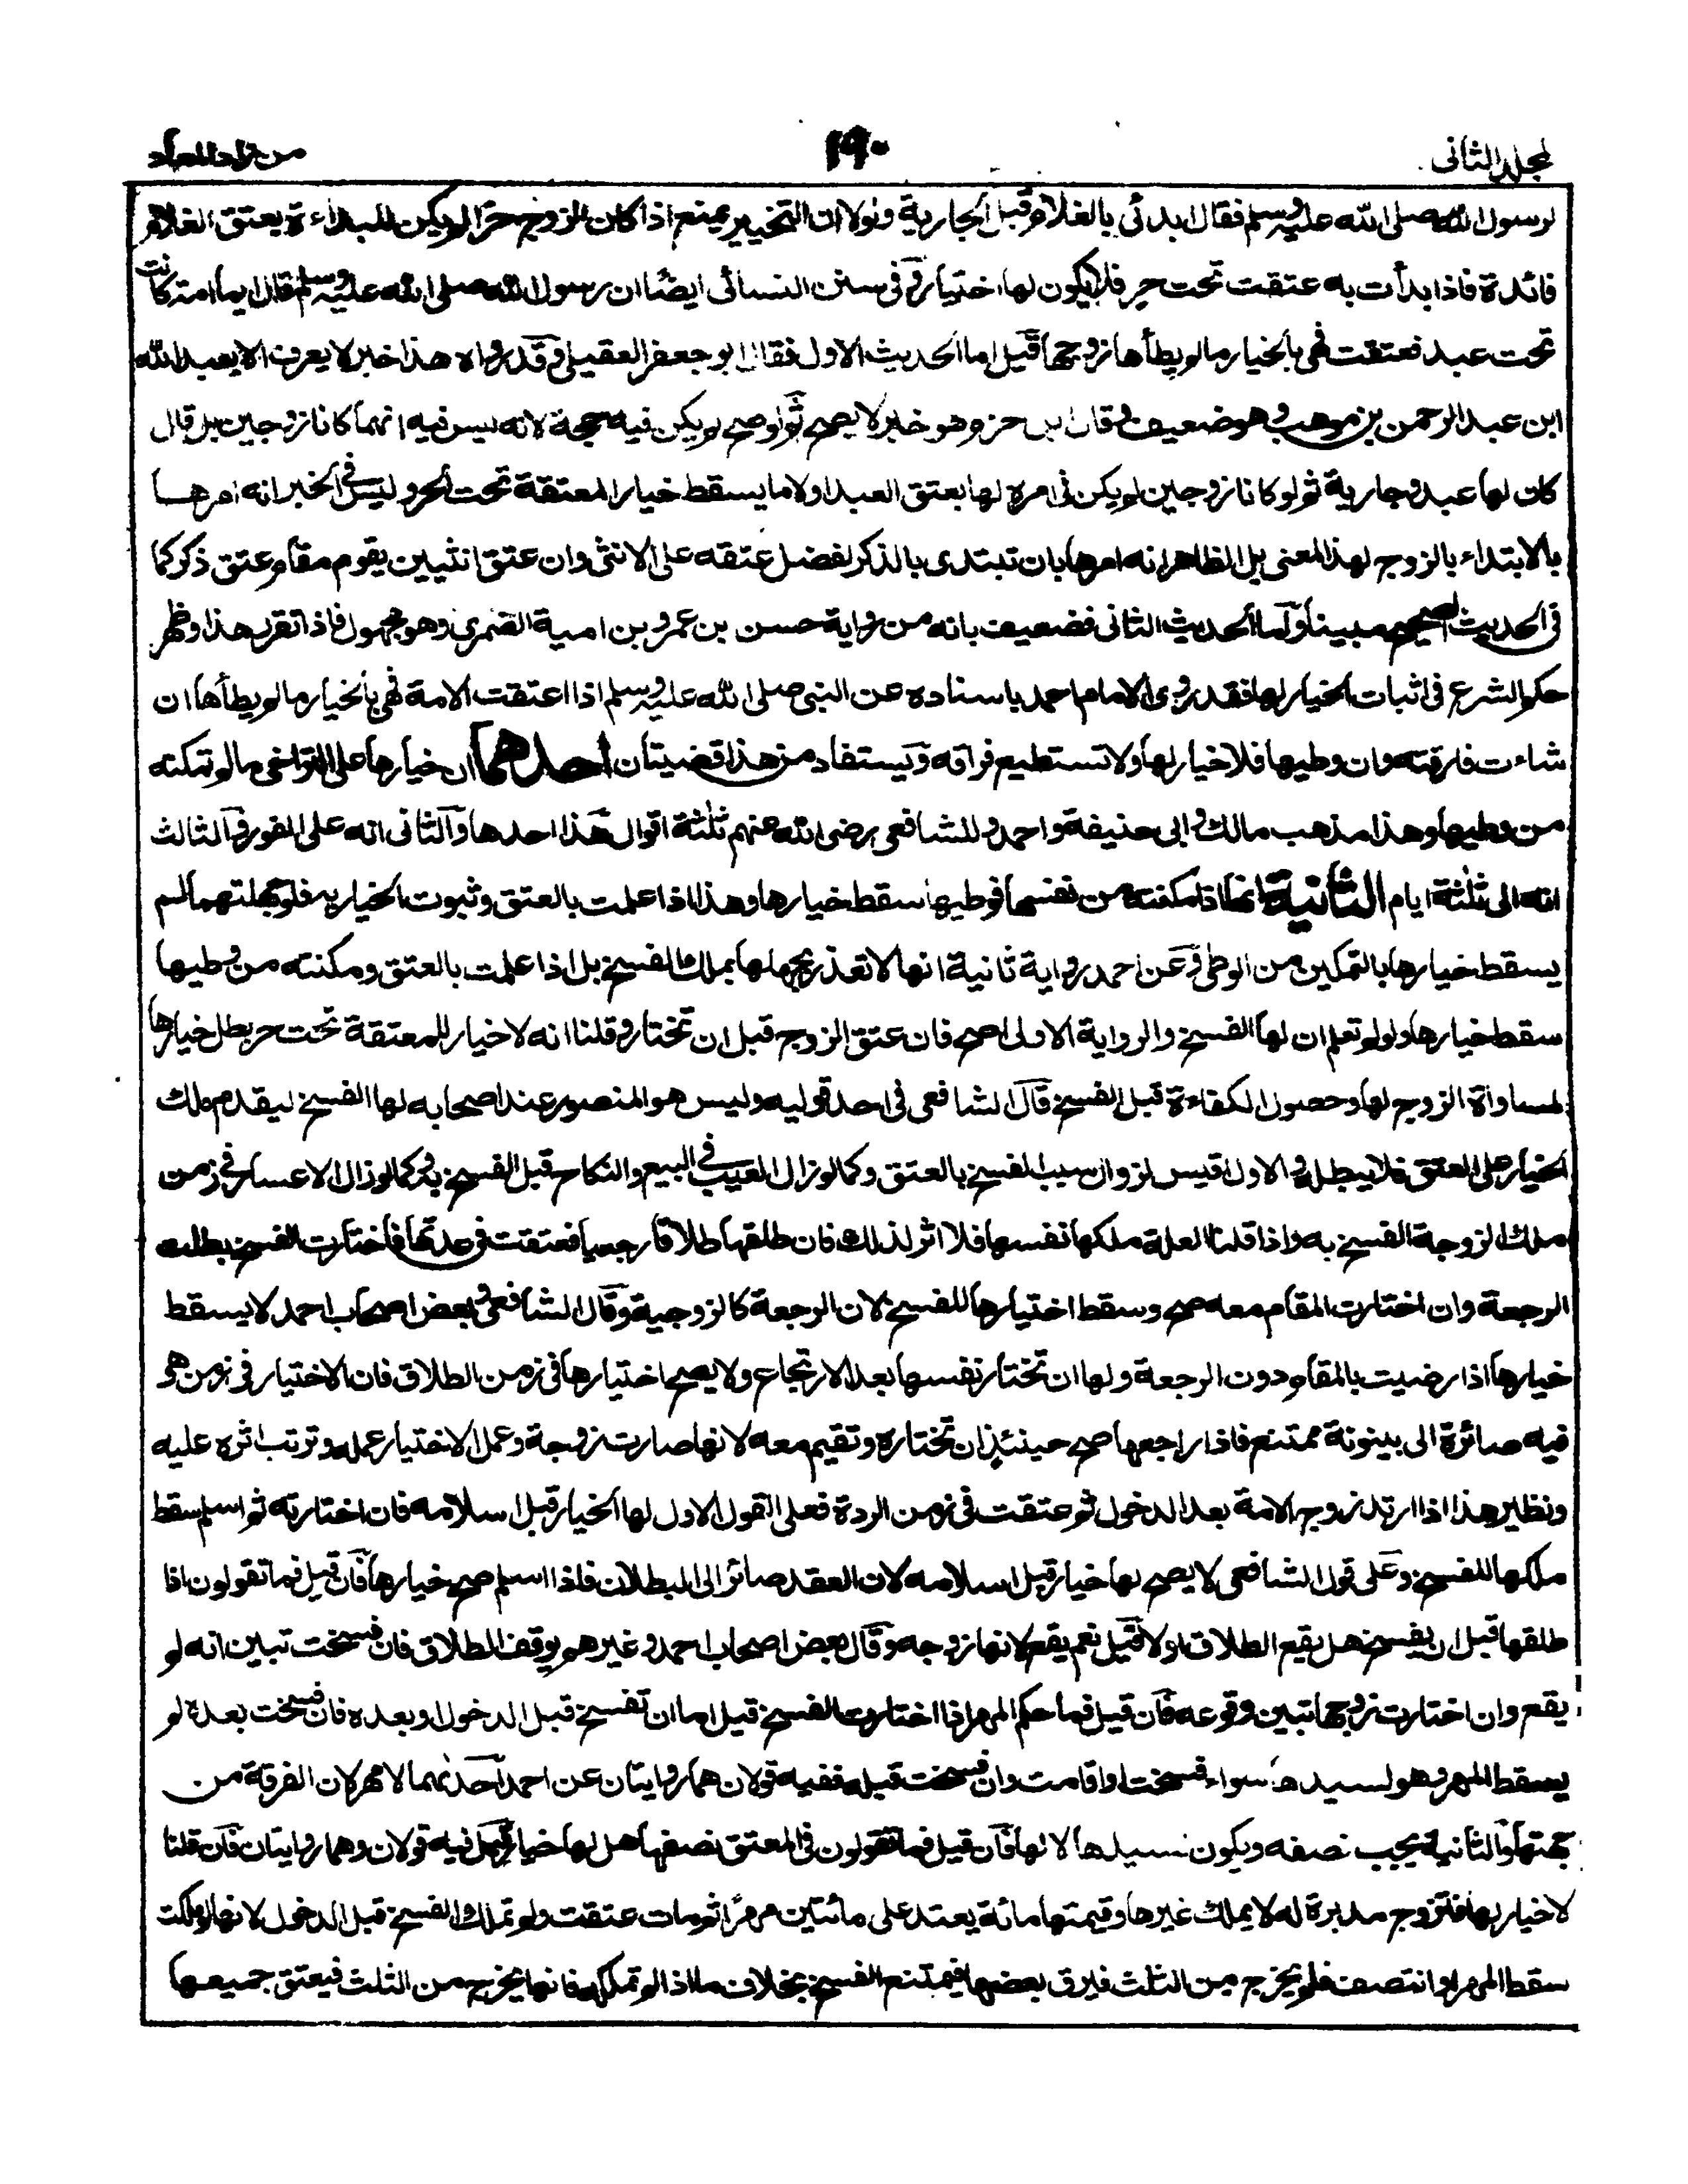 لمجلد الثانى
١٩٠
من زاد المعاد
لرسول الله صلى الله عليه وسلم فقال ابدئى بالغلام قبل الجارية ولولا ان التخيير يمتنع اذا كان الزوج حرا لم يكن للبداءة بعتق الغلام
فائدة فاذا بدأت به عتقت تحت حر فلا يكون لها اختيار و فى سنن النسائى ايضا ان رسول الله صلى الله عليه وسلم قال ايما امة كانت
تحت عبد فعتقت فهى بالخيار مالم يطأها زوجها قيل اما الحديث الاول فقال ابو جعفر العقيلى و قد رواه هذا خبر لا يعرف الا بعبد الله
ابن عبد الرحمن بن موهب وهو ضعيف و قال ابن حزم وهو خبر لا يصح ثم لو صح لم يكن فيه حجة لانه ليس فيه انهما كانا زوجين بل قال
كان لها عبد وجارية ثم لو كانا زوجين لم يكن فى امره لها بعتق العبد اولا ما يسقط خيار المعتقة تحت الحر وليس فى الخبر انه امرها
بالابتداء بالزوج لهذا المعنى بل الظاهر انه امرها بان تبتدى بالذكر لفضل عتقه على الانثى وان عتق انثيين يقوم مقام عتق ذكر كما
فى الحديث الصحيح مبينا واما الحديث الثانى فضعيف بانه من رواية حسن بن عمرو بن امية الضمرى وهو مجهول فاذا تقرر هذا وظهر
حكم الشرع فى اثبات الخيار لها فقد روى الامام احمد باسناده عن النبى صلى الله عليه وسلم اذا اعتقت الامة فهى بالخيار مالم يطأها ان
شاءت فارقته وان وطيها فلا خيار لها ولا تستطيع فراقه ويستفاد من هذا قضيتان احدهما ان خيارها على التراخى مالم تمكنه
من وطيها وهذا مذهب مالك و ابى حنيفة و احمد و للشافعى رضى الله عنهم ثلثة اقوال هذا احدها و الثانى انه على الفور و الثالث
انه الى ثلثة ايام الثانية انها اذا مكنته من نفسها فوطيها سقط خيارها وهذا اذا علمت بالعتق وثبوت الخيار به فلو جهلتهما لم
يسقط خيارها بالتمكين من الوطى و عن احمد رواية ثانية انها لا تعذر بجهلها بملك الفسخ بل اذا علمت بالعتق ومكنته من وطيها
سقط خيارها ولو لم تعلم ان لها الفسخ والرواية الاولى اصح فان عتق الزوج قبل ان تختار وقلنا انه لا خيار للمعتقة تحت حر بطل خيارها
لمساواة الزوج لها وحصول الكفاءة قبل الفسخ قال الشافعى فى احد قوليه وليس هو المنصور عند اصحابه لها الفسخ ليقدم ملك
الخيار على العتق فلا يبطل و الاول اقيس لزوال سبب الفسخ بالعتق وكما لو زال العيب فى البيع والنكاح قبل الفسخ به وكما لو زال الاعسار فى زمن
ملك الزوجة الفسخ به واذا قلنا العلة ملكها نفسها فلا اثر لذلك فان طلقها طلاقا رجعيا فعتقت فى عدتها فاختارت الفسخ بطلت
الرجعة وان اختارت المقام معه صح وسقط اختيارها للفسخ لان الرجعة كالزوجية وقال الشافعى و بعض اصحاب احمد لا يسقط
خيارها اذا رضيت بالمقام دون الرجعة ولها ان تختار نفسها بعد الارتجاع ولا يصح اختيارها فى زمن الطلاق فان الاختيار فى زمن هو
فيه صائرة الى بينونة ممتنع فاذا راجعها صح حينئذ ان تختاره وتقيم معه لانها صارت زوجة وعمل الاختيار عمله وترتب اثره عليه
ونظير هذا اذا ارتد زوج الامة بعد الدخول ثم عتقت فى زمن الردة فعلى القول الاول لها الخيار قبل اسلامه فان اختارته ثم اسلم سقط
ملكها للفسخ وعلى قول الشافعى لا يصح لها خيار قبل اسلامه لان العقد صائر الى البطلان فاذا اسلم صح خيارها فان قيل فما تقولون اذا
طلقها قبل ان يفسخ هل يقع الطلاق اولا قيل نعم يقع لانها زوجه وقال بعض اصحاب احمد و غيرهم يوقف الطلاق فان فسخت تبين انه لم
يقع وان اختارت زوجها تبين وقوعه فان قيل فما حكم المهر اذا اختارت الفسخ قيل اما ان تفسخ قبل الدخول او بعده فان فسخت بعده لم
يسقط المهر وهو لسيدها سواء فسخت او اقامت وان فسخت قبله ففيه قولان هما روايتان عن احمد احدهما لا مهر لان الفرقة من
جهتها والثانية يجب نصفه ويكون لسيدها لا لها فان قيل فما تقولون فى المعتق نصفها هل لها خيار قيل فيه قولان وهما روايتان فان قلنا
لا خيار لها فلزوج مدبرة له لا يملك غيرها وقيمتها مائة يعتد على مائتين مهرا ثم مات عتقت ولم تملك الفسخ قبل الدخول لانها لو ملكت
سقط المهر او انتصف فلم يخرج من الثلث فيرق بعضها فيمتنع الفسخ بخلاف ما اذا لم تملكه فانها يخرج من الثلث فيعتق جميعها